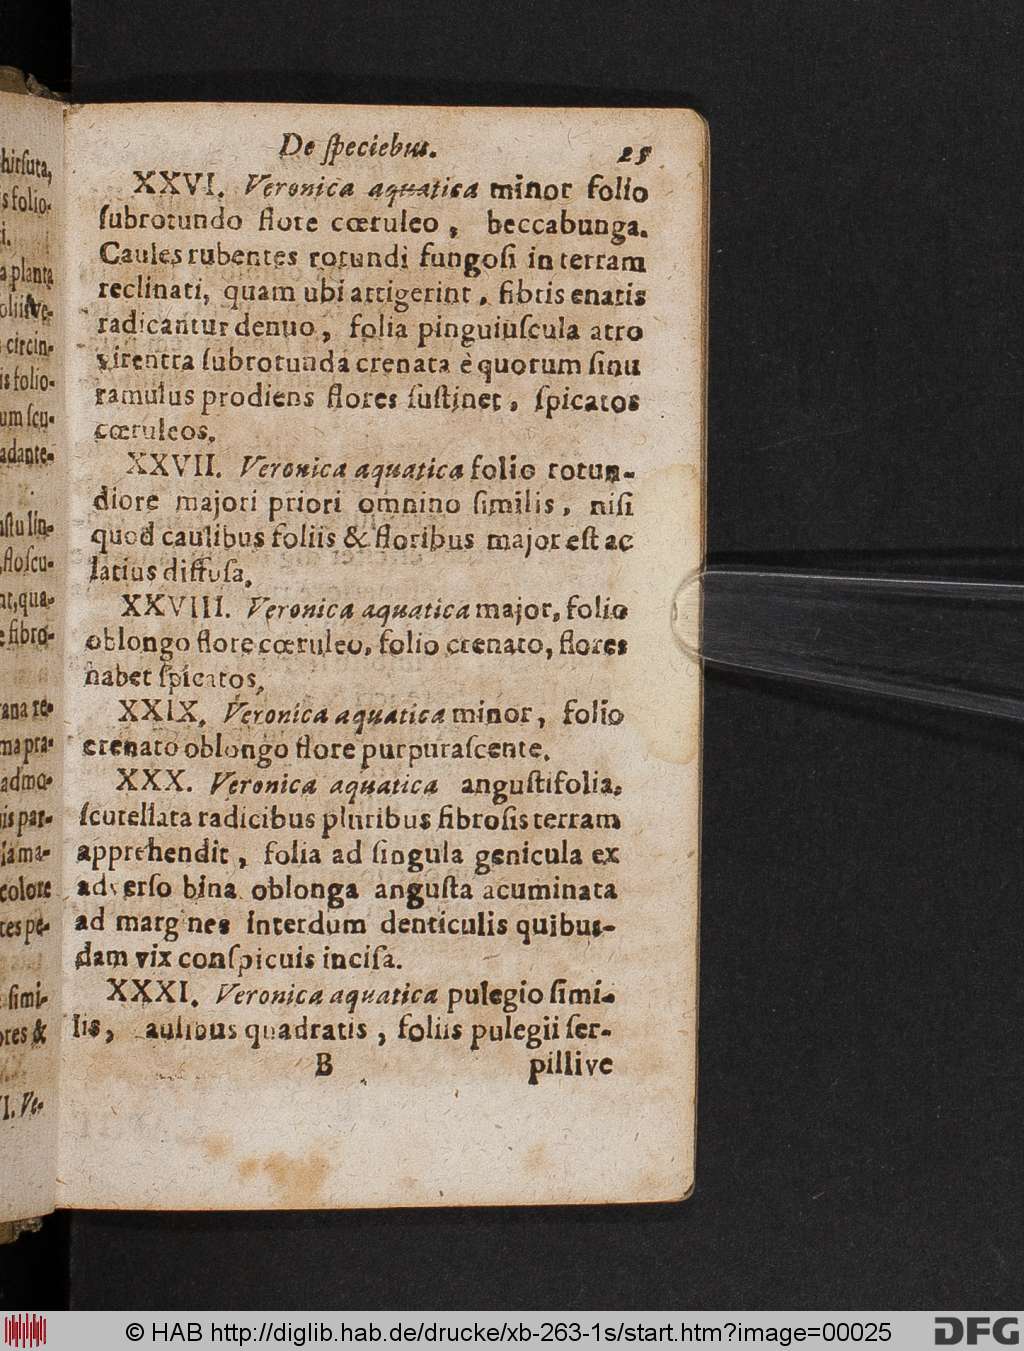 hirſuta,
s folio-
i.
a planta
oliiſve-
circin-
is folio-
um ſcu-
adante-
ſtu lin-
floſcu-
at, qua-
e fibro-
ana re-
ma pra-
admo-
iis par-
ia ma-
colore
tes pe-
ſimi-
ores &
I. Ve-
De ſpeciebus. 25
XXVI. Veronica aquatica minor folio
ſubrotundo flore cœruleo, beccabunga.
Caules rubentes rotundi fungoſi in terram
reclinati, quam ubi attigerint, fibris enatis
radicantur denuo, folia pinguiuſcula atro
virentia ſubrotunda crenata è quorum ſinu
ramulus prodiens flores ſuſtinet, ſpicatos
cœruleos.
XXVII. Veronica aquatica folio rotun-
diore majori priori omnino ſimilis, niſi
quod caulibus foliis & floribus major eſt ac
latius diffuſa.
XXVIII. Veronica aquatica major, folio
oblongo flore cœruleo, folio crenato, flores
habet ſpicatos.
XXIX. Veronica aquatica minor, folio
crenato oblongo flore purpuraſcente.
XXX. Veronica aquatica anguſtifolia,
ſcutellata radicibus pluribus fibroſis terram
apprehendit, folia ad ſingula genicula ex
adverſo bina oblonga anguſta acuminata
ad margines interdum denticulis quibus-
dam vix conſpicuis inciſa.
XXXI. Veronica aquatica pulegio ſimi-
lis, aulibus quadratis, foliis pulegii ſer-
B pillive
© HAB http://diglib.hab.de/drucke/xb-263-1s/start.htm?image=00025
DFG